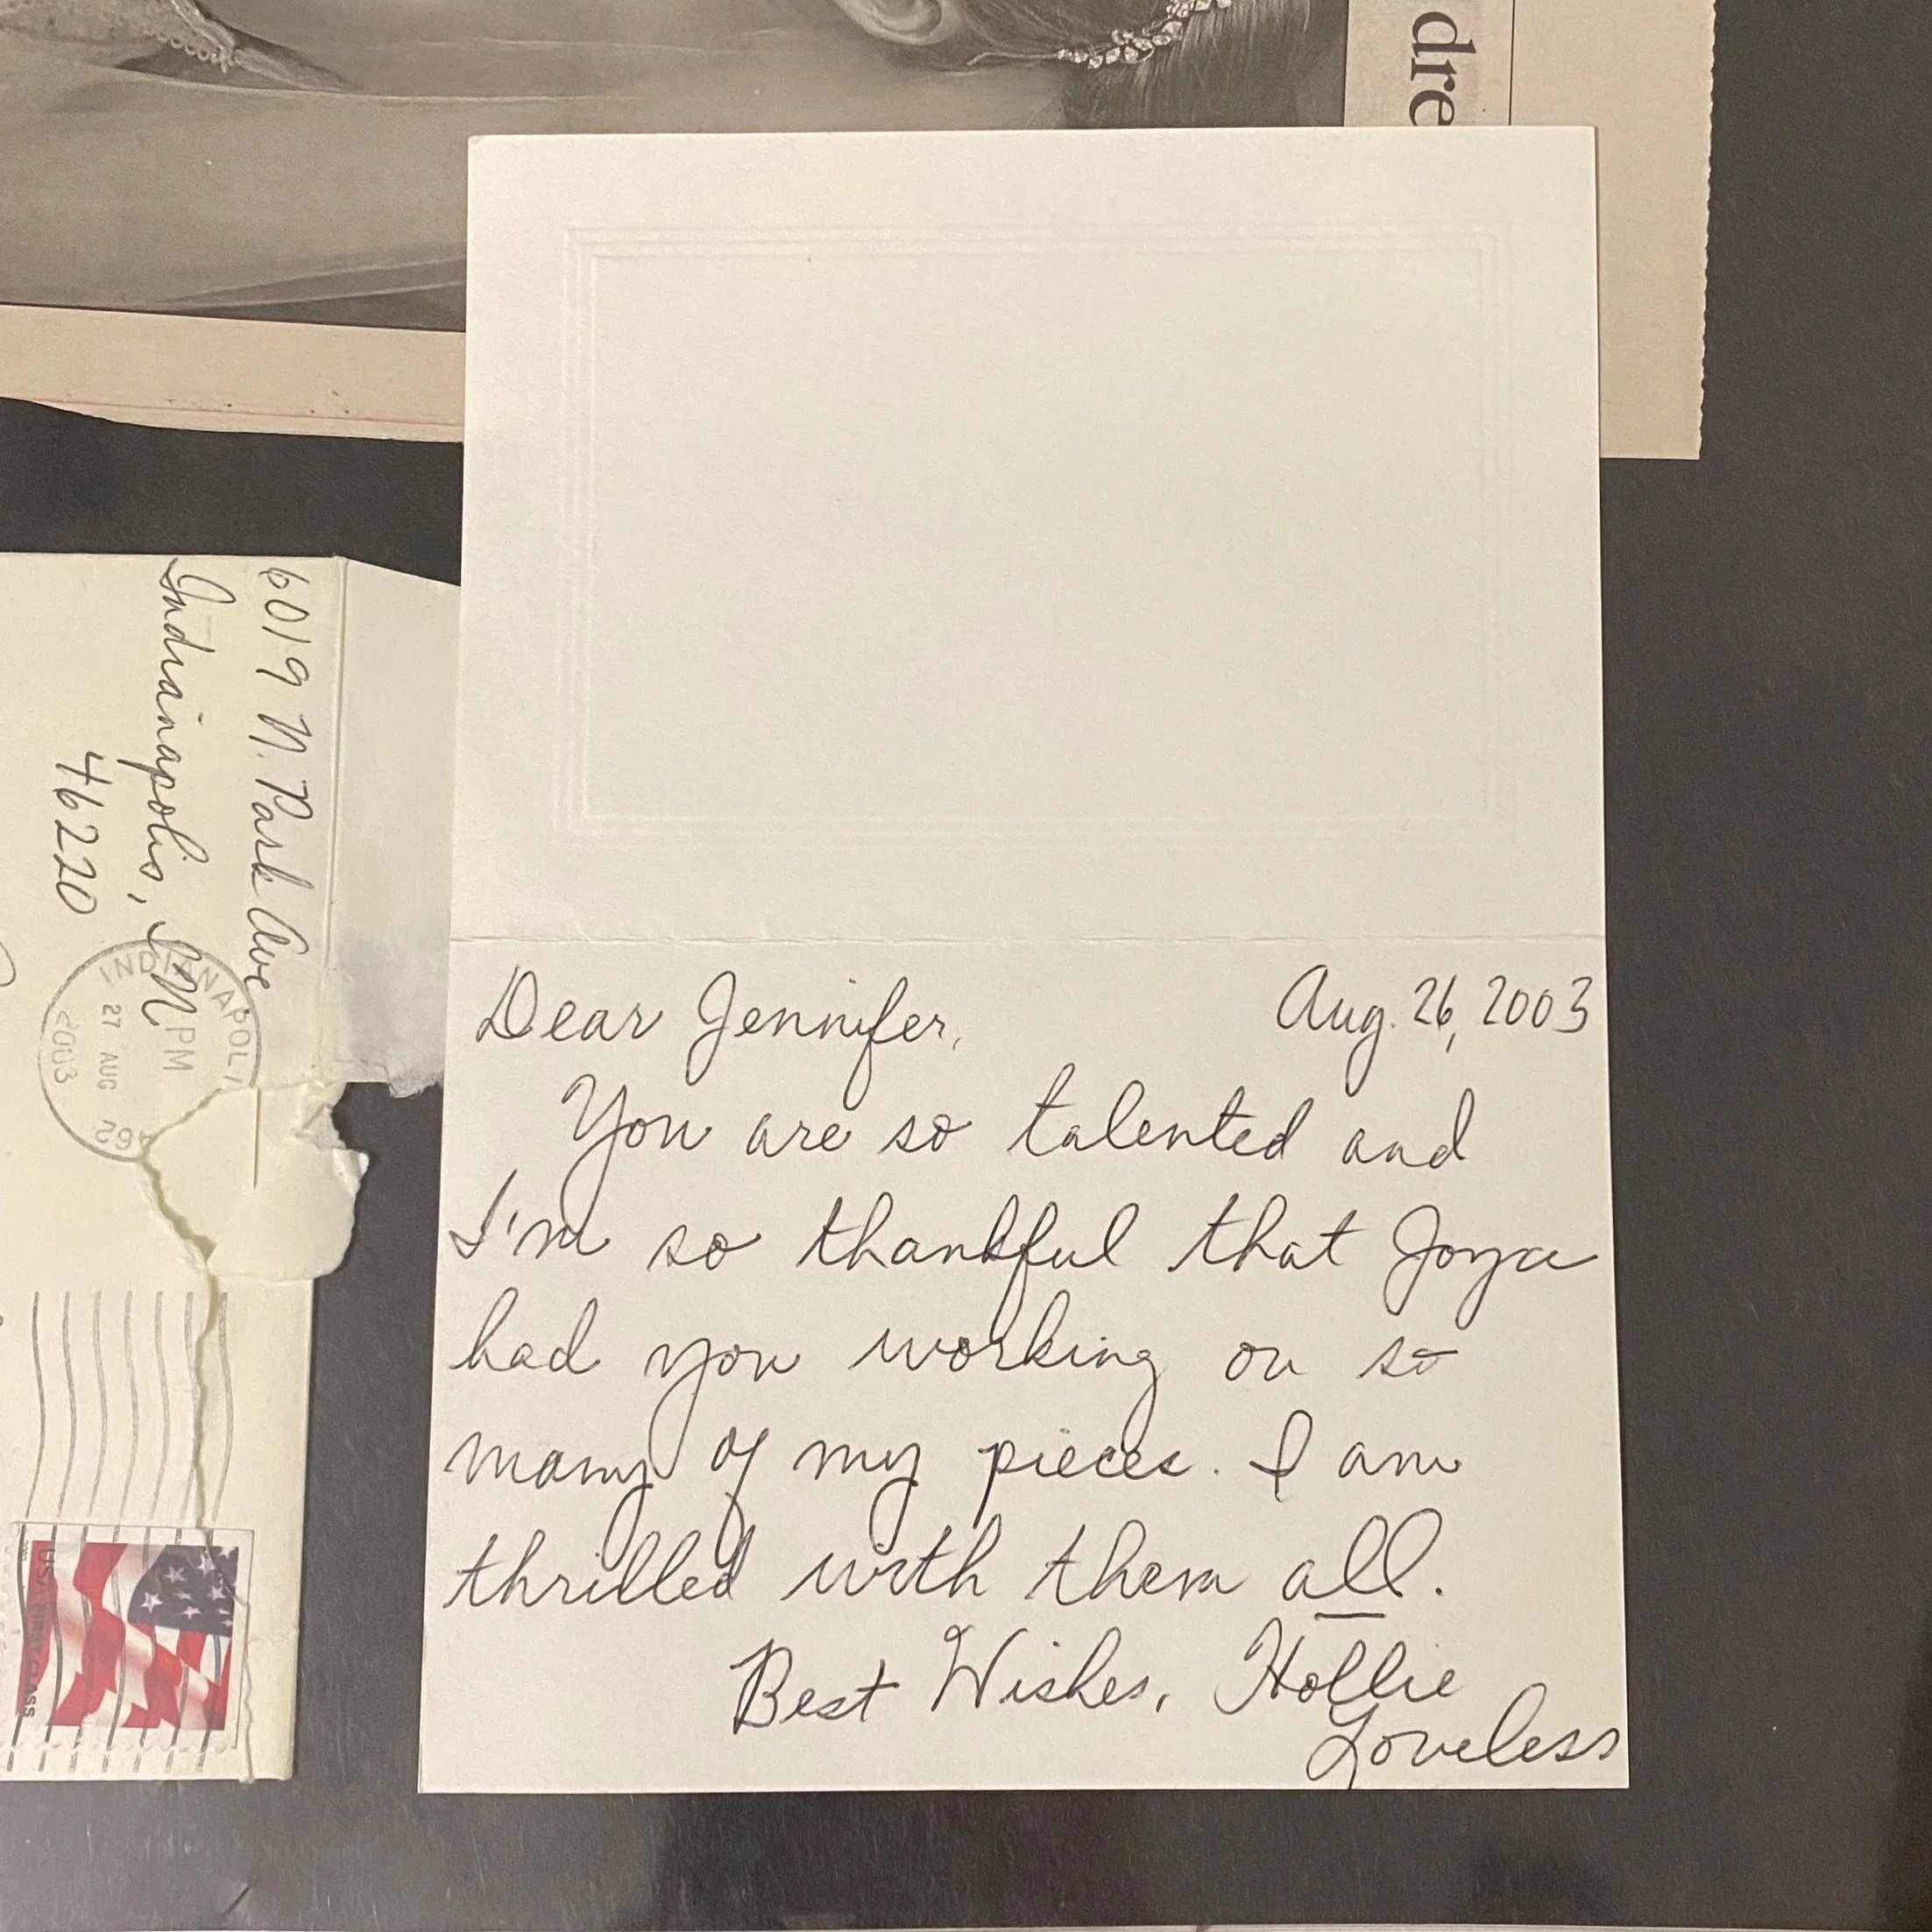 dre
6019 N. Park Ave
Indianapolis, IN
46220
INDIANAPOLI
PM
27 AUG
2003
462
USA FIRST CLASS
Dear Jennifer, Aug. 26, 2003
You are so talented and
I'm so thankful that Joya
had you working on so
many of my pieces. I am
thrilled with them all.
Best Wishes, Hollie
Loveless